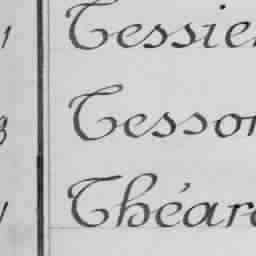 Tessier
Tesson
Théard